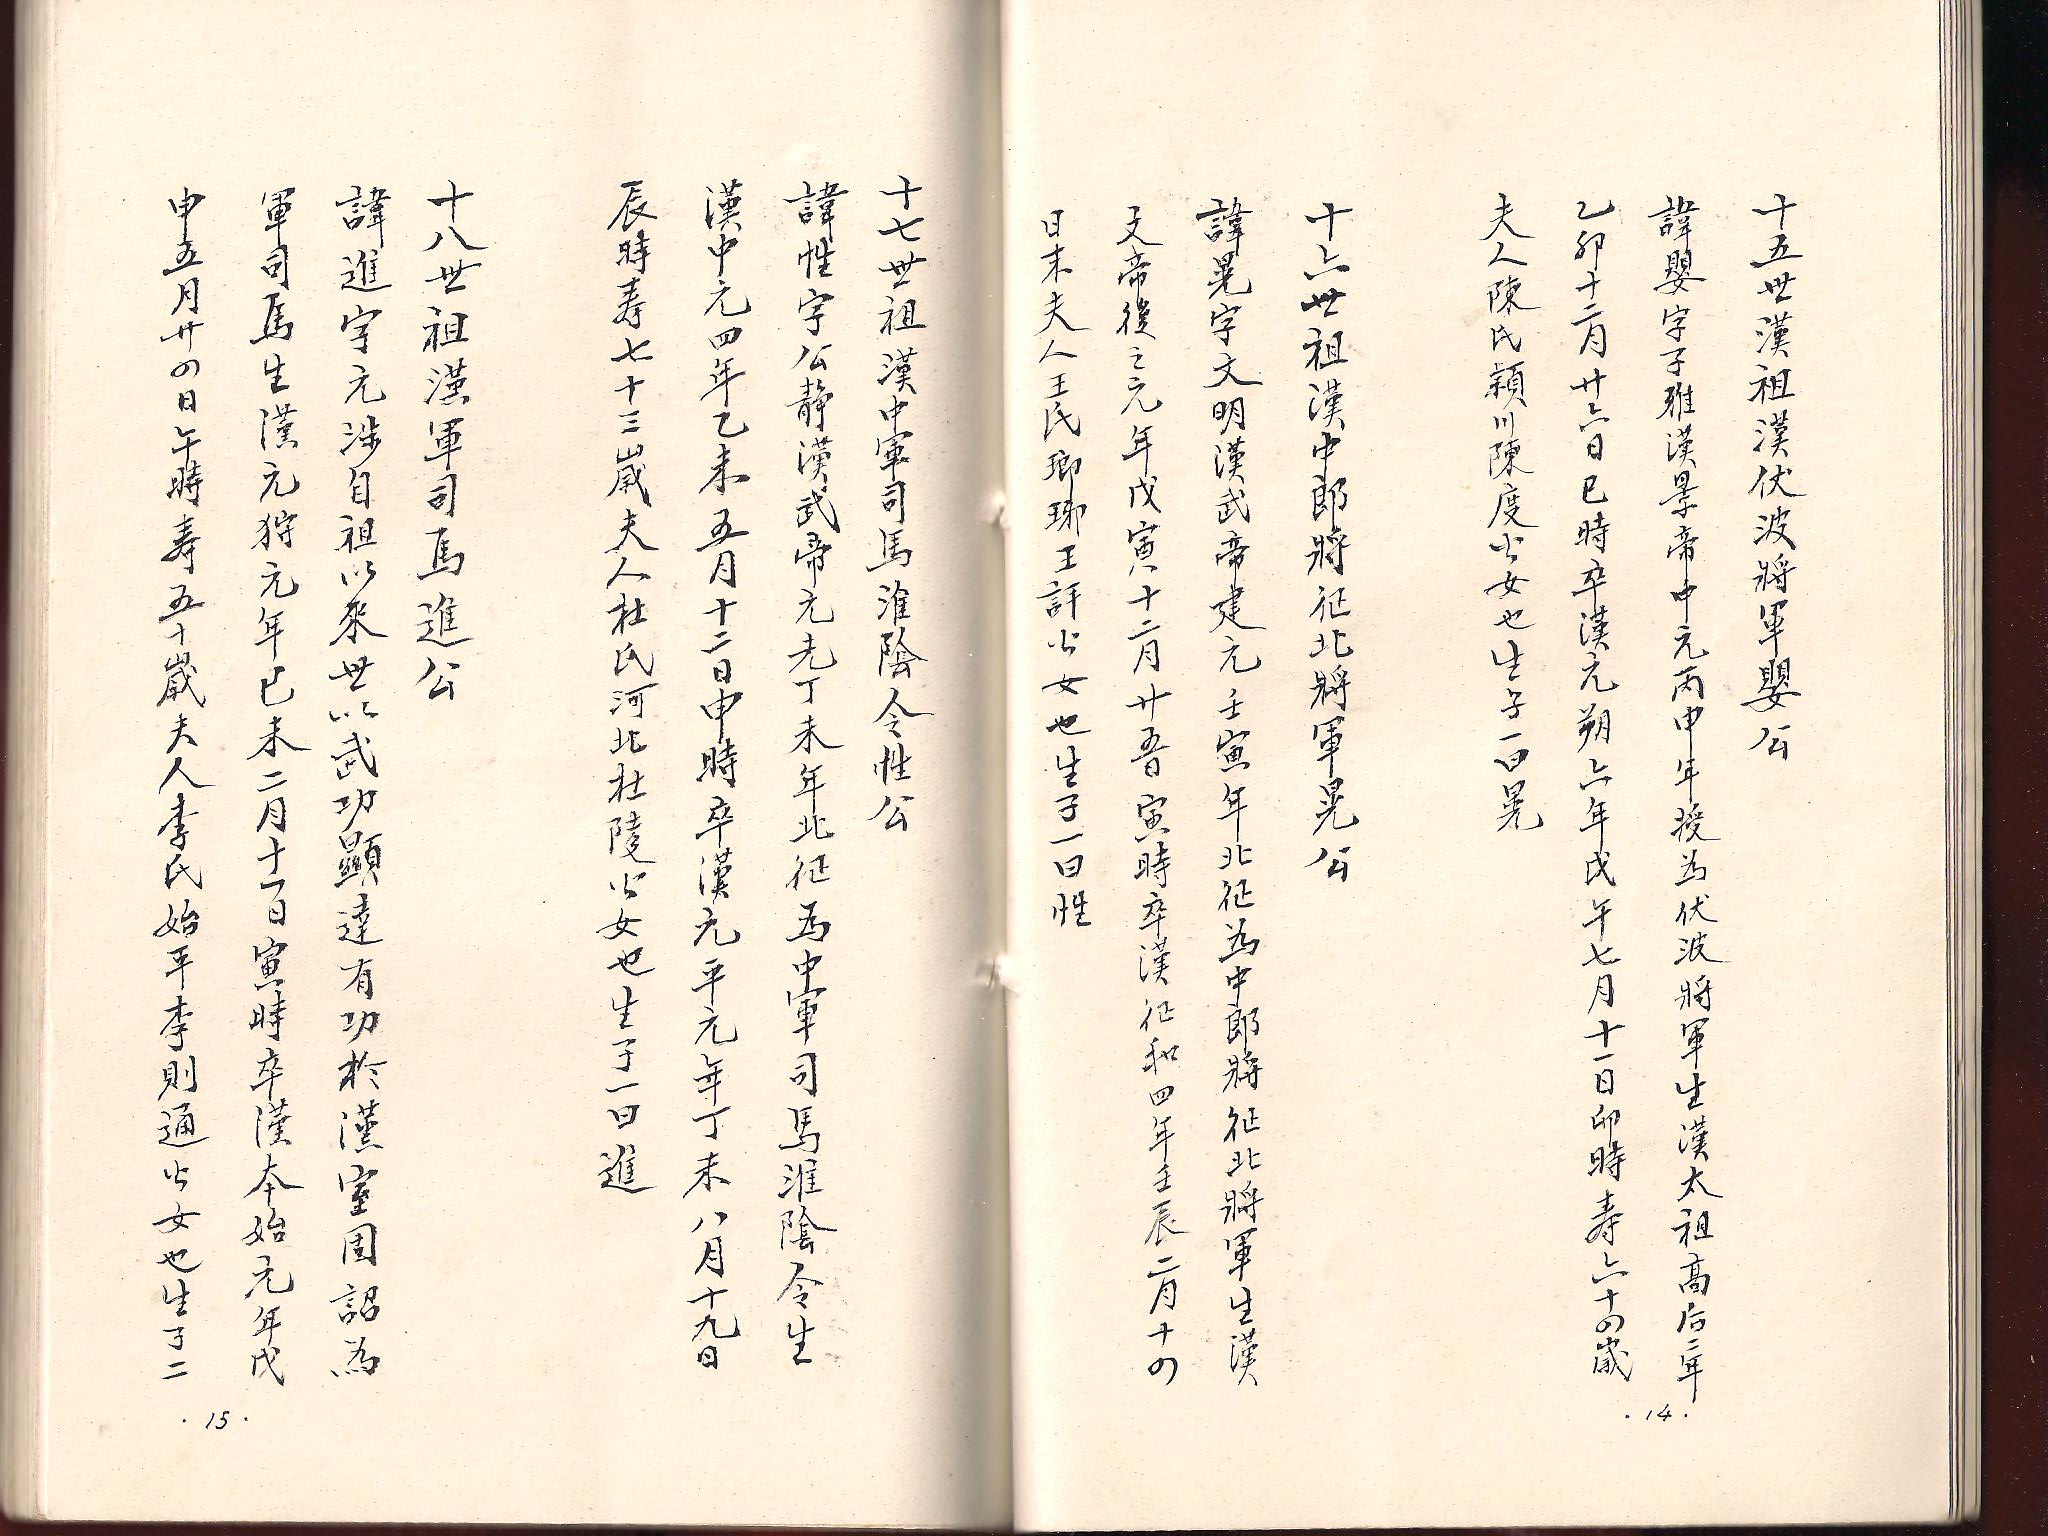 十五世漢祖漢伏波將軍嬰公
諱嬰字子雅漢景帝中元丙申年授為伏波將軍生漢太祖高后二年
乙卯十二月廿六日巳時卒漢元朔六年戊午七月十一日卯時壽六十四歲
夫人陳氏穎川陳度公女也生子一曰晃
十六世祖漢中郎將征北將軍晃公
諱晃字文明漢武帝建元壬寅年北征為中郎將征北將軍生漢
文帝後之元年戊寅十二月廿五日寅時卒漢征和四年壬辰二月十四
日未夫人王氏瑯琊王評公女也生子一曰性
·14·
十七世祖漢中軍司馬淮陰令性公
諱性字公靜漢武帝元光丁未年北征為中軍司馬淮陰令生
漢中元四年乙未五月十二日申時卒漢元平元年丁未八月十九日
辰時壽七十三歲夫人杜氏河北杜陵公女也生子一曰進
十八世祖漢軍司馬進公
諱進字元涉自祖以來世以武功顯達有功於漢室固詔為
軍司馬生漢元狩元年已未二月十一日寅時卒漢本始元年戊
申五月廿四日午時壽五十歲夫人李氏始平李則通公女也生子二
·15·